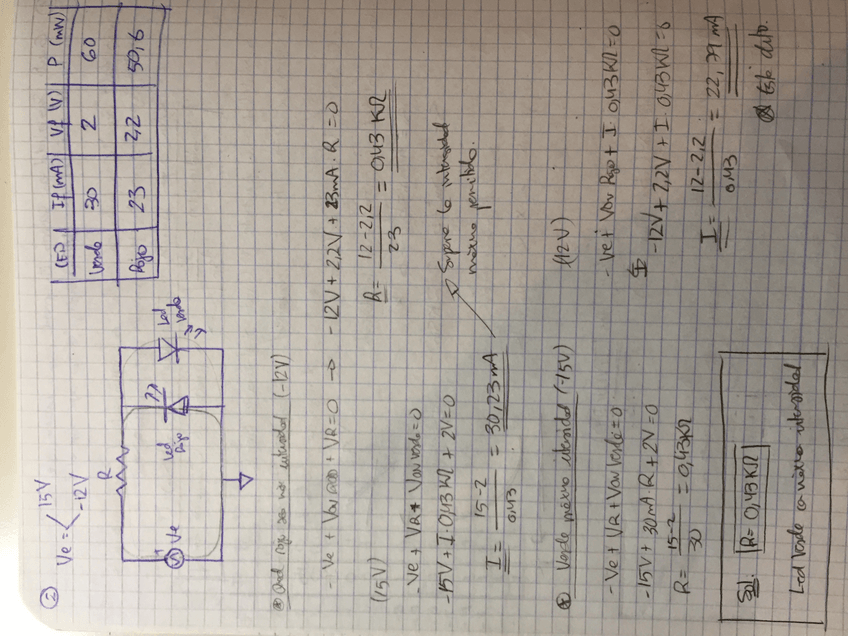 ②
Ve = 15V
-12V
R
Ve
Led
Rojo
Led
Verde
LED | If (mA) | Vf (V) | P (mW)
Verde | 30 | 2 | 60
Rojo | 23 | 2,2 | 50,6
rojo intensidad (-12V)
- Ve + Von + VR = 0 → -12V + 2,2V + 23mA · R = 0
R = 12-2,2 / 23 = 0,43 KΩ
(15V)
- Ve + VR + Von verde = 0
-15V + I · 0,43 KΩ + 2V = 0
I = 15-2 / 0,43 = 30,23 mA
Supera la intensidad
máxima permitida.
Verde máxima intensidad (-15V)
- Ve + VR + Von Verde = 0
-15V + 30 mA · R + 2V = 0
R = 15-2 / 30 = 0,43KΩ
(12V)
- Ve + Von Rojo + I · 0,43 KΩ = 0
-12V + 2,2V + I · 0,43 KΩ = 0
I = 12-2,2 / 0,43 = 22,79 mA
Sol. R = 0,43 KΩ
Led Verde con máxima intensidad